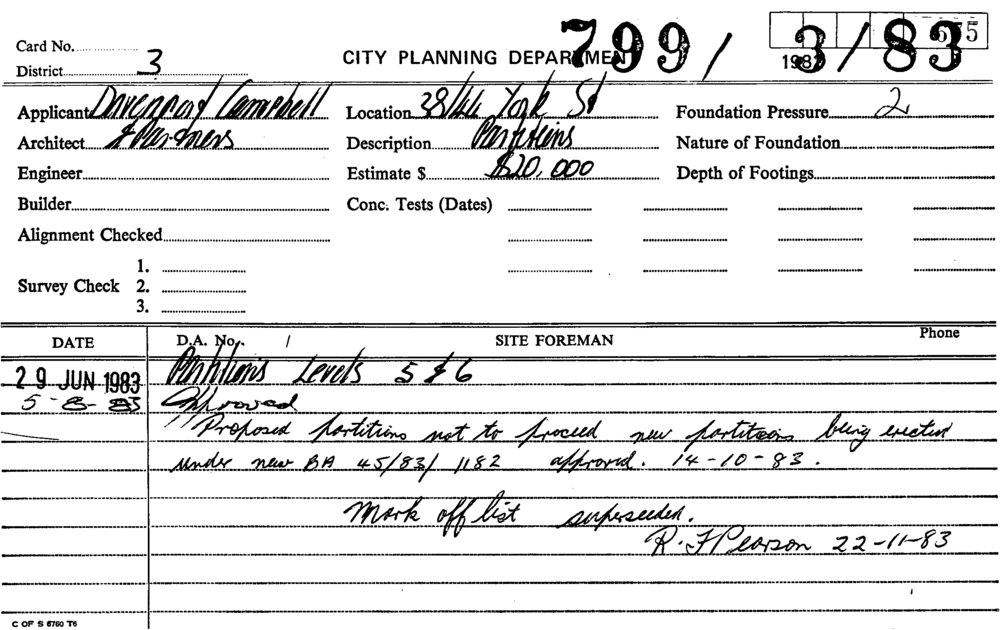 Card No.
799/3/83
District 3
CITY PLANNING DEPARTMENT
Applicant Davenport Campbell
Location 38/44 York St
Foundation Pressure 2
Architect & Partners
Description Partitions
Nature of Foundation
Engineer
Estimate $ $20,000
Depth of Footings
Builder
Conc. Tests (Dates)
Alignment Checked
1.
Survey Check 2.
3.
DATE D.A. No. / SITE FOREMAN Phone
29 JUN 1983 Partitions Levels 5 & 6
5-8-83 Approved
"Proposed partitions not to proceed new partitions being erected
under new BA 45/83/1182 approved. 14-10-83.
Mark off list superseeded.
R.F Pearson 22-11-83
C OF S 6760 T6